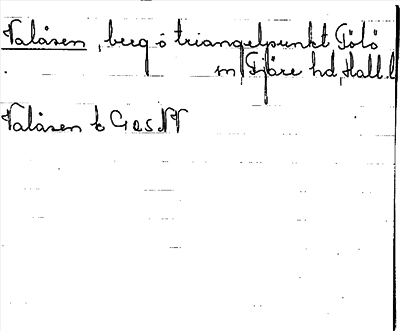 Valåsen, berg o triangelpunkt Fölö
sn Fjäre hd, Hall. l
Valåsen b Gas NV